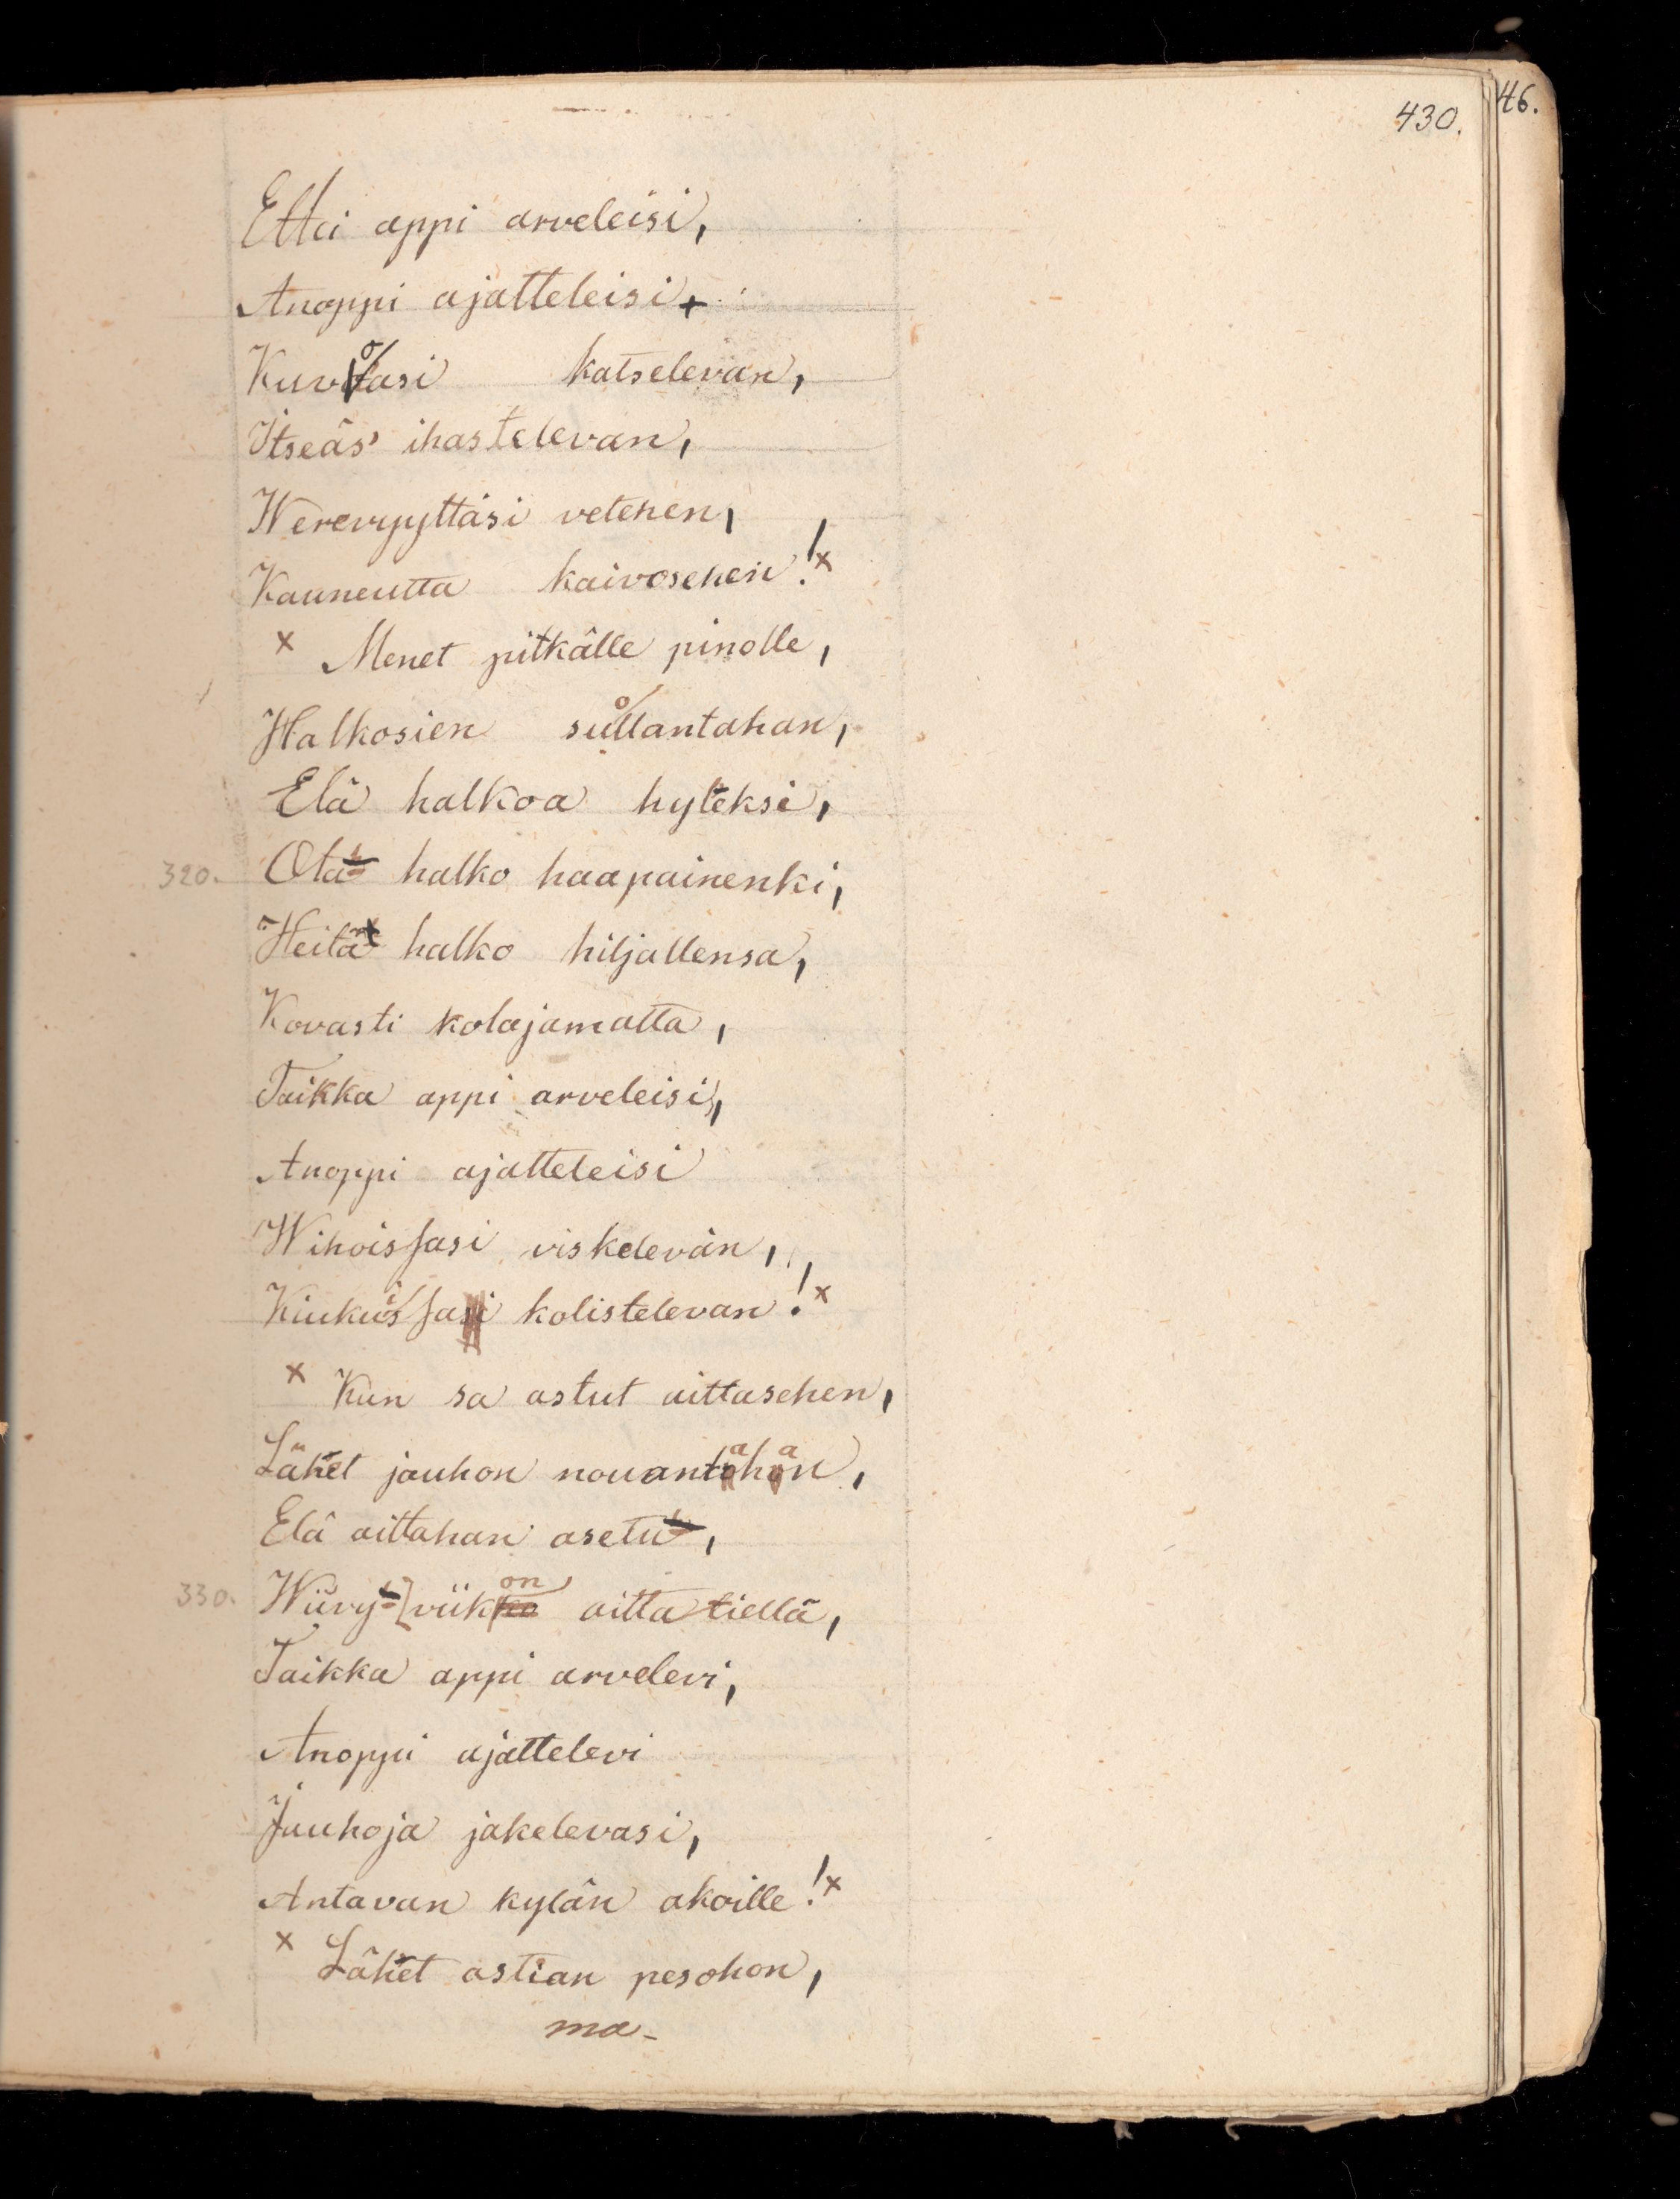 430.
46.
Ettei appi arveleisi,
Anoppi ajatteleisi
Kuvoasi katselevan,
Itseäs' ihastelevan,
Werevyyttäsi vetehen,
Kauneutta kaivosehen! x
x Menet pitkälle pinolle,
Halkosien sollantahan,
Elä halkoa hyleksi,
320. Ota halko haapainenki,
Heitä halko hiljallensa,
Kovasti kolajamatta,
Taikka appi arveleisi,
Anoppi ajatteleisi
Wihoissasi viskelevän,
Kiukuissasi kolistelevan! x
x Kun sa astut aittasehen,
Lähet jauhon nouantahan,
Elä aittahan asetu,
330. Wiivy [viikon aitta tiellä,
Taikka appi arvelevi,
Anoppi ajattelevi
Jauhoja jakelevasi,
Antavan kylän akoille! x
x Lähet astian pesohon,
ma-